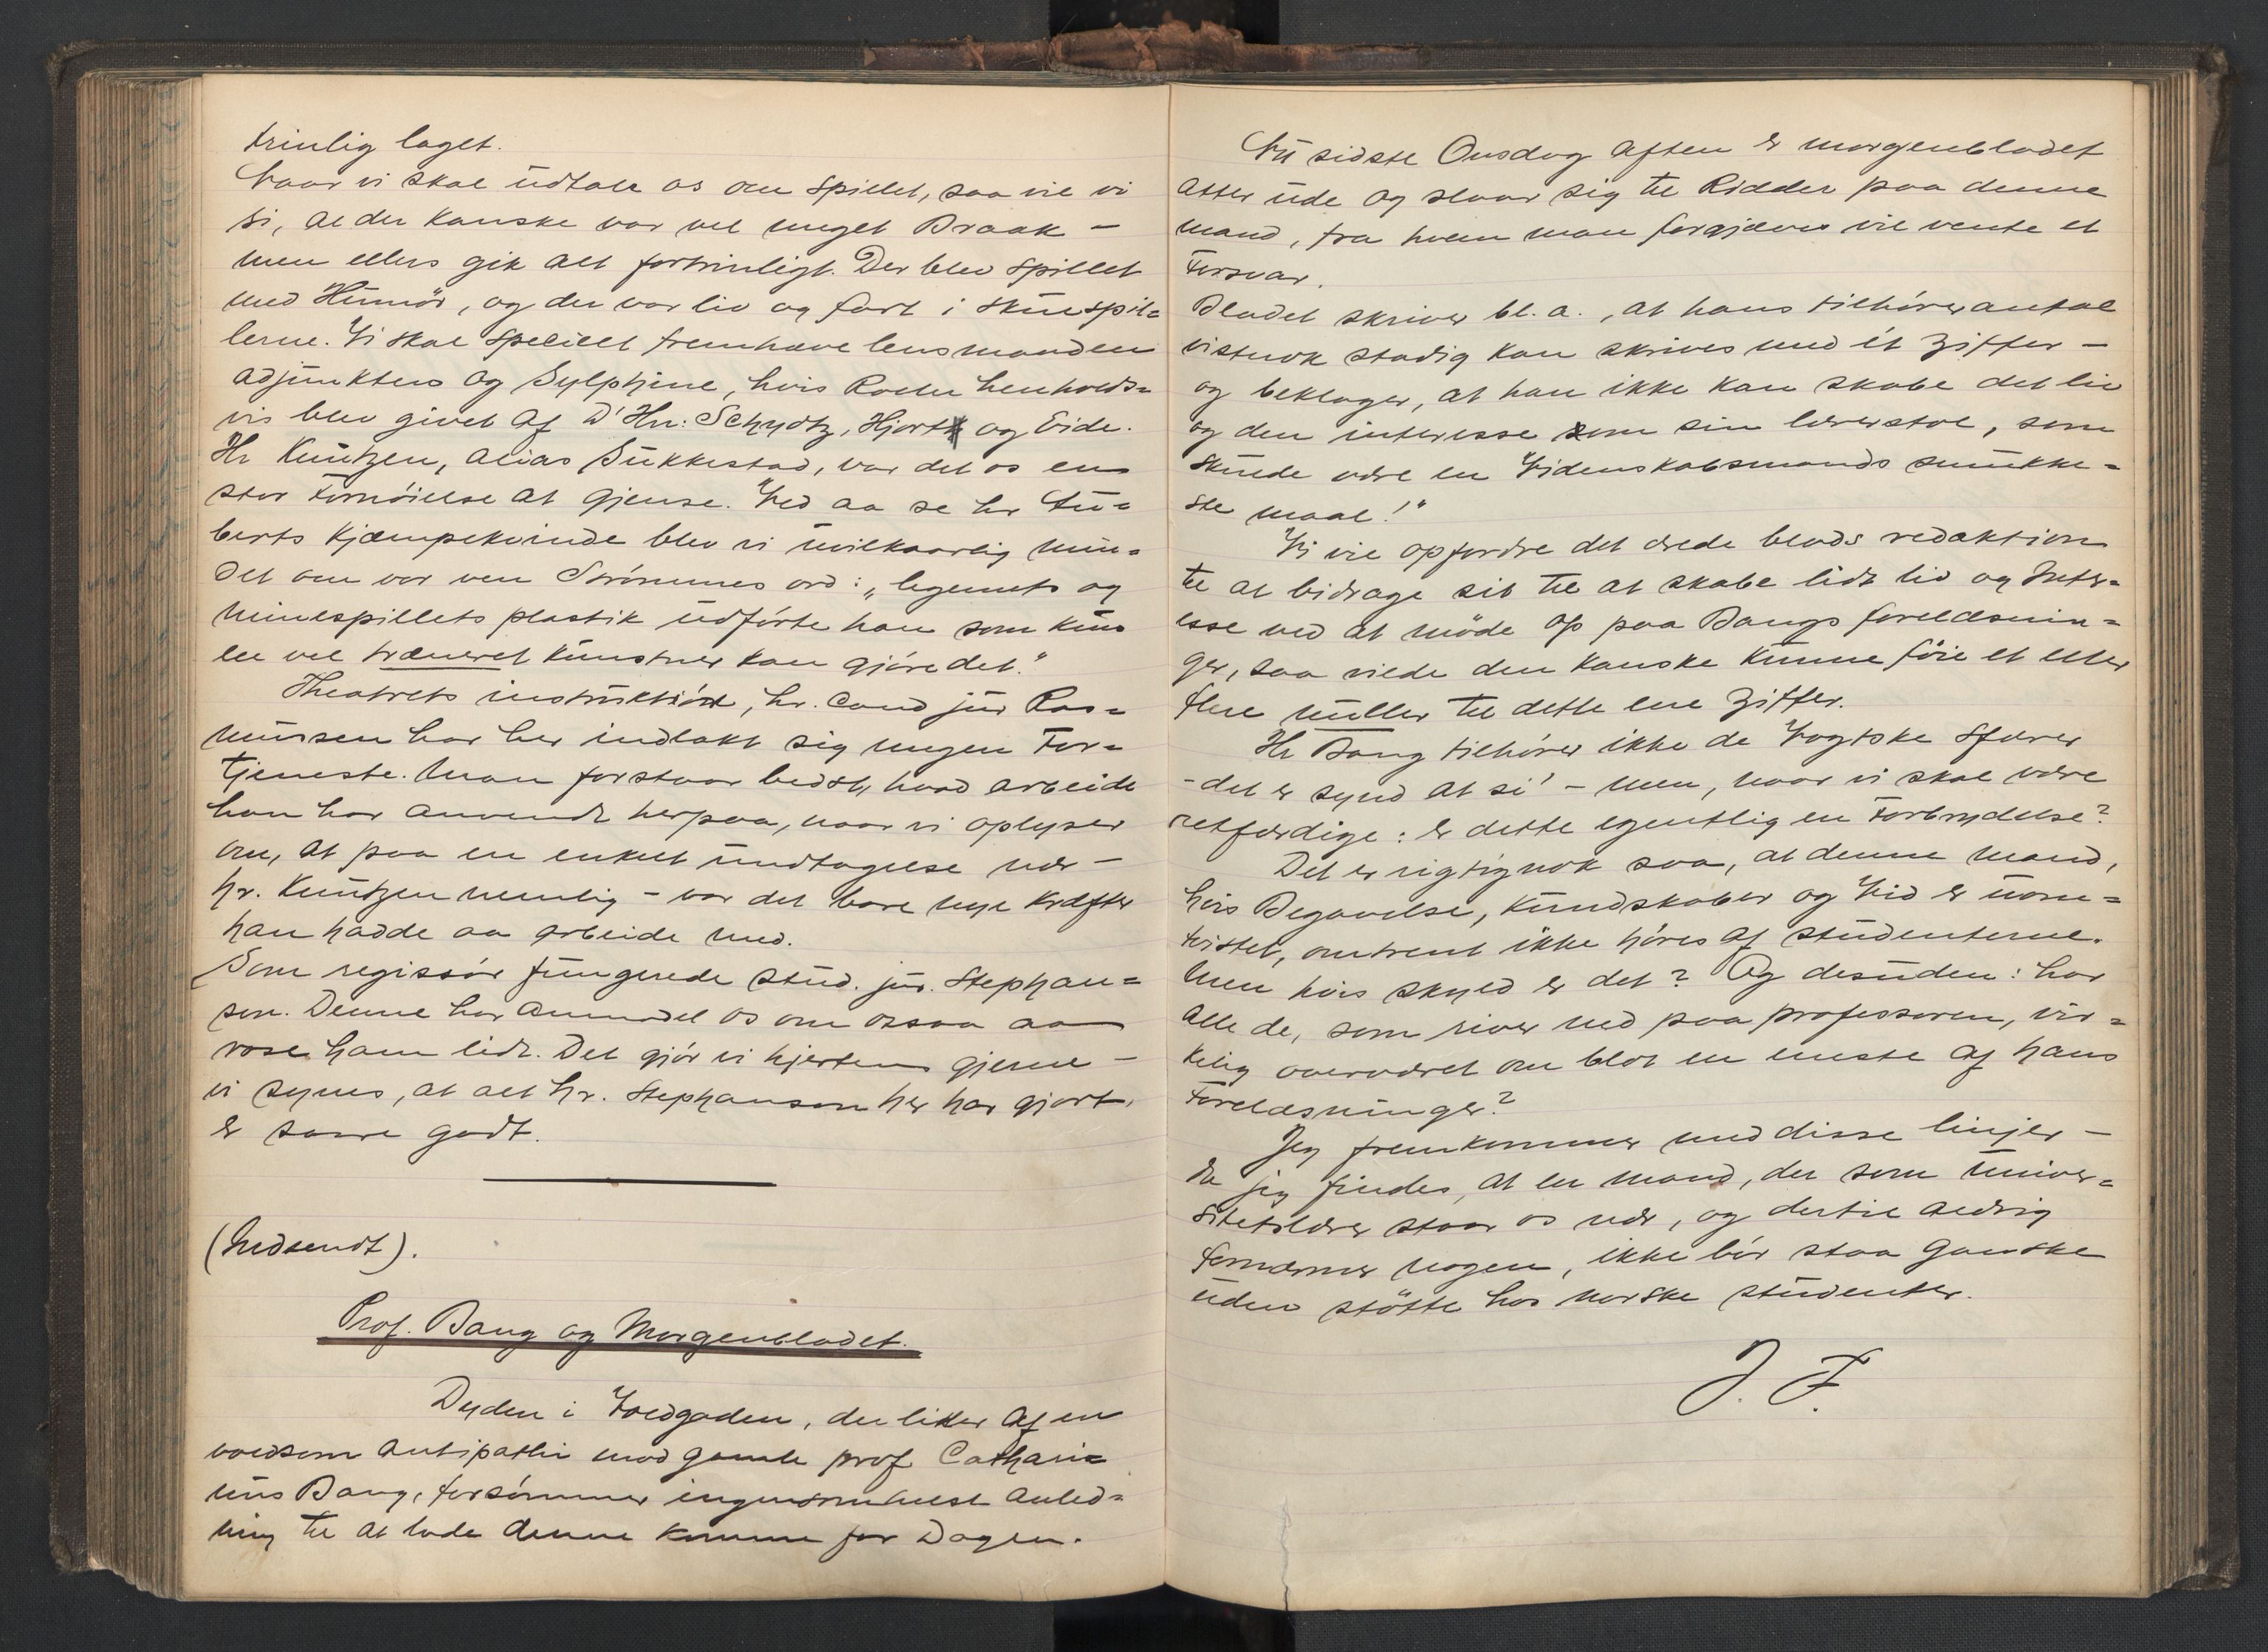 trinlig laget.
Naar vi skal udtale os om spillet, saa vil vi
si, at der kanske var vel meget Braak -
men ellers gik alt fortrinligt. Der blev spillet
med Humør, og der var liv og fart i skuespil=
lerne. Vi skal specielt fremhæve lensmanden
adjunkten og Sylphine, hvis Roller henholds=
vis blev givet af D'Hrr: Schydtz, Hjort og Eide.
Hr Knutzen, alias Sukkestad, var det os en
stor Fornøielse at gjense. Ved aa se hr Nu=
berts kjæmpekvinde blev vi uvilkaarlig min=
det om vor ven Strømmes ord: „legemets og
minespillets plastik udførte han som kun
en vel træneret kunstner kan gjøre det."
Theatrets instruktiør, hr. cand jur Ras=
mussen har her indlakt sig megen For=
tjeneste. Man forstaar bedst, hvad arbeide
han har anvendt herpaa, naar vi oplyser
om, at paa en enkelt undtagelse nær -
hr. Knutzen nemlig - var det bare nye kræfter
han hadde aa arbeide med.
Som regissør fungerede stud. jur. Stephan=
son. Denne har anmodet os om ossaa aa
rose ham lidt. Det gjør vi hjertens gjerne -
vi synes, at alt hr. Stephanson her har gjort,
er saare godt.
(Indsendt).
Prof. Bang og Morgenbladet.
Dyden i Voldgaden, der lider af en
voldsom antipathi mod gamle prof. Cathari=
nus Bang, forsømmer ingensomhelst anled=
ning til at lade denne komme for Dagen.
Nu sidste Onsdag aften er morgenbladet
atter ude og slaar sig til Ridder paa denne
mand, fra hvem man forgjæves vil vente et
Forsvar.
Bladet skriver bl. a., at hans tilhørerantal
vistnok stadig kan skrives med ét ziffer -
og beklager, at han ikke kan skabe det liv
og den interesse om sin lærerstol, som
skulde være en Videnskabsmands smukke=
ste maal!"
Vi vil opfordre det ærede blads redaktion
til at bidrage sit til at skabe lidt liv og Inter=
esse ved at møde op paa Bangs forelæsnin=
ger, saa vilde den kanske kunne føie et eller
flere nuller til dette ene ziffer.
Hr Bang tilhører ikke de Vogtske Sfærer
- det er synd at si! - men, naar vi skal være
retfærdige: er dette egentlig en Forbrydelse?
Det er rigtignok saa, at denne mand,
hvis Begavelse, kundskaber og Vid er uom=
tvistet, omtrent ikke høres af studenterne.
Men hvis skyld er det? Og desuden: har
alle de, som river ned paa professoren, vir=
kelig overværet om blot en eneste af hans
Forelæsninger?
Jeg fremkommer med disse linjer -
da jeg findes, at en mand, der som Univer=
sitetslærer staar os nær, og dertil aldrig
fornærmer nogen, ikke bør staa ganske
uden støtte hos norske studenter.
J. F.